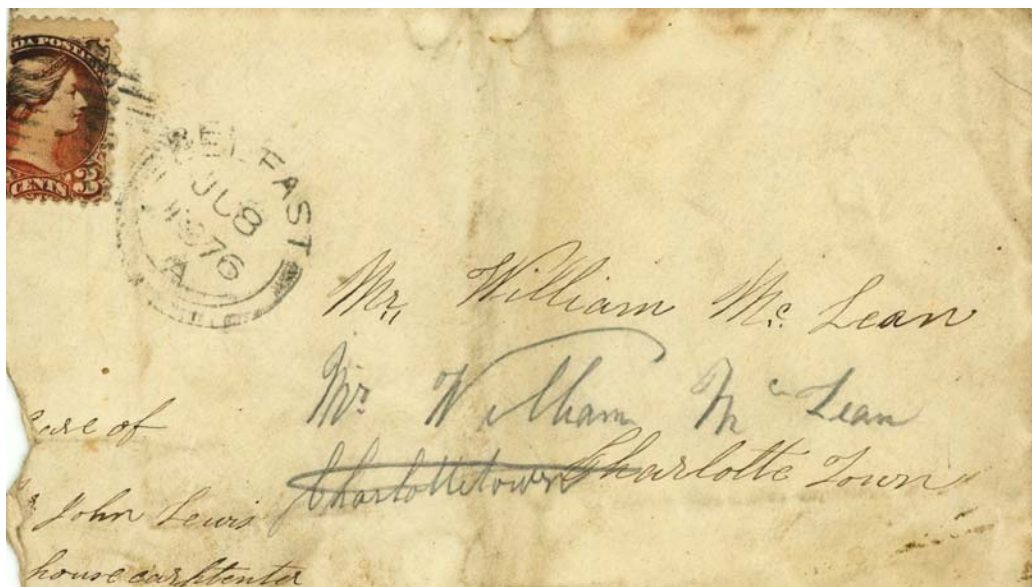 DA POSTA
CENTS 3
BELFAST
JU 8
1876
A
Mr. William Mc. Lean
Mr William Mc Lean
Care of
Charlottetown Charlotte Town
Mr. John Lewis
house carptenter